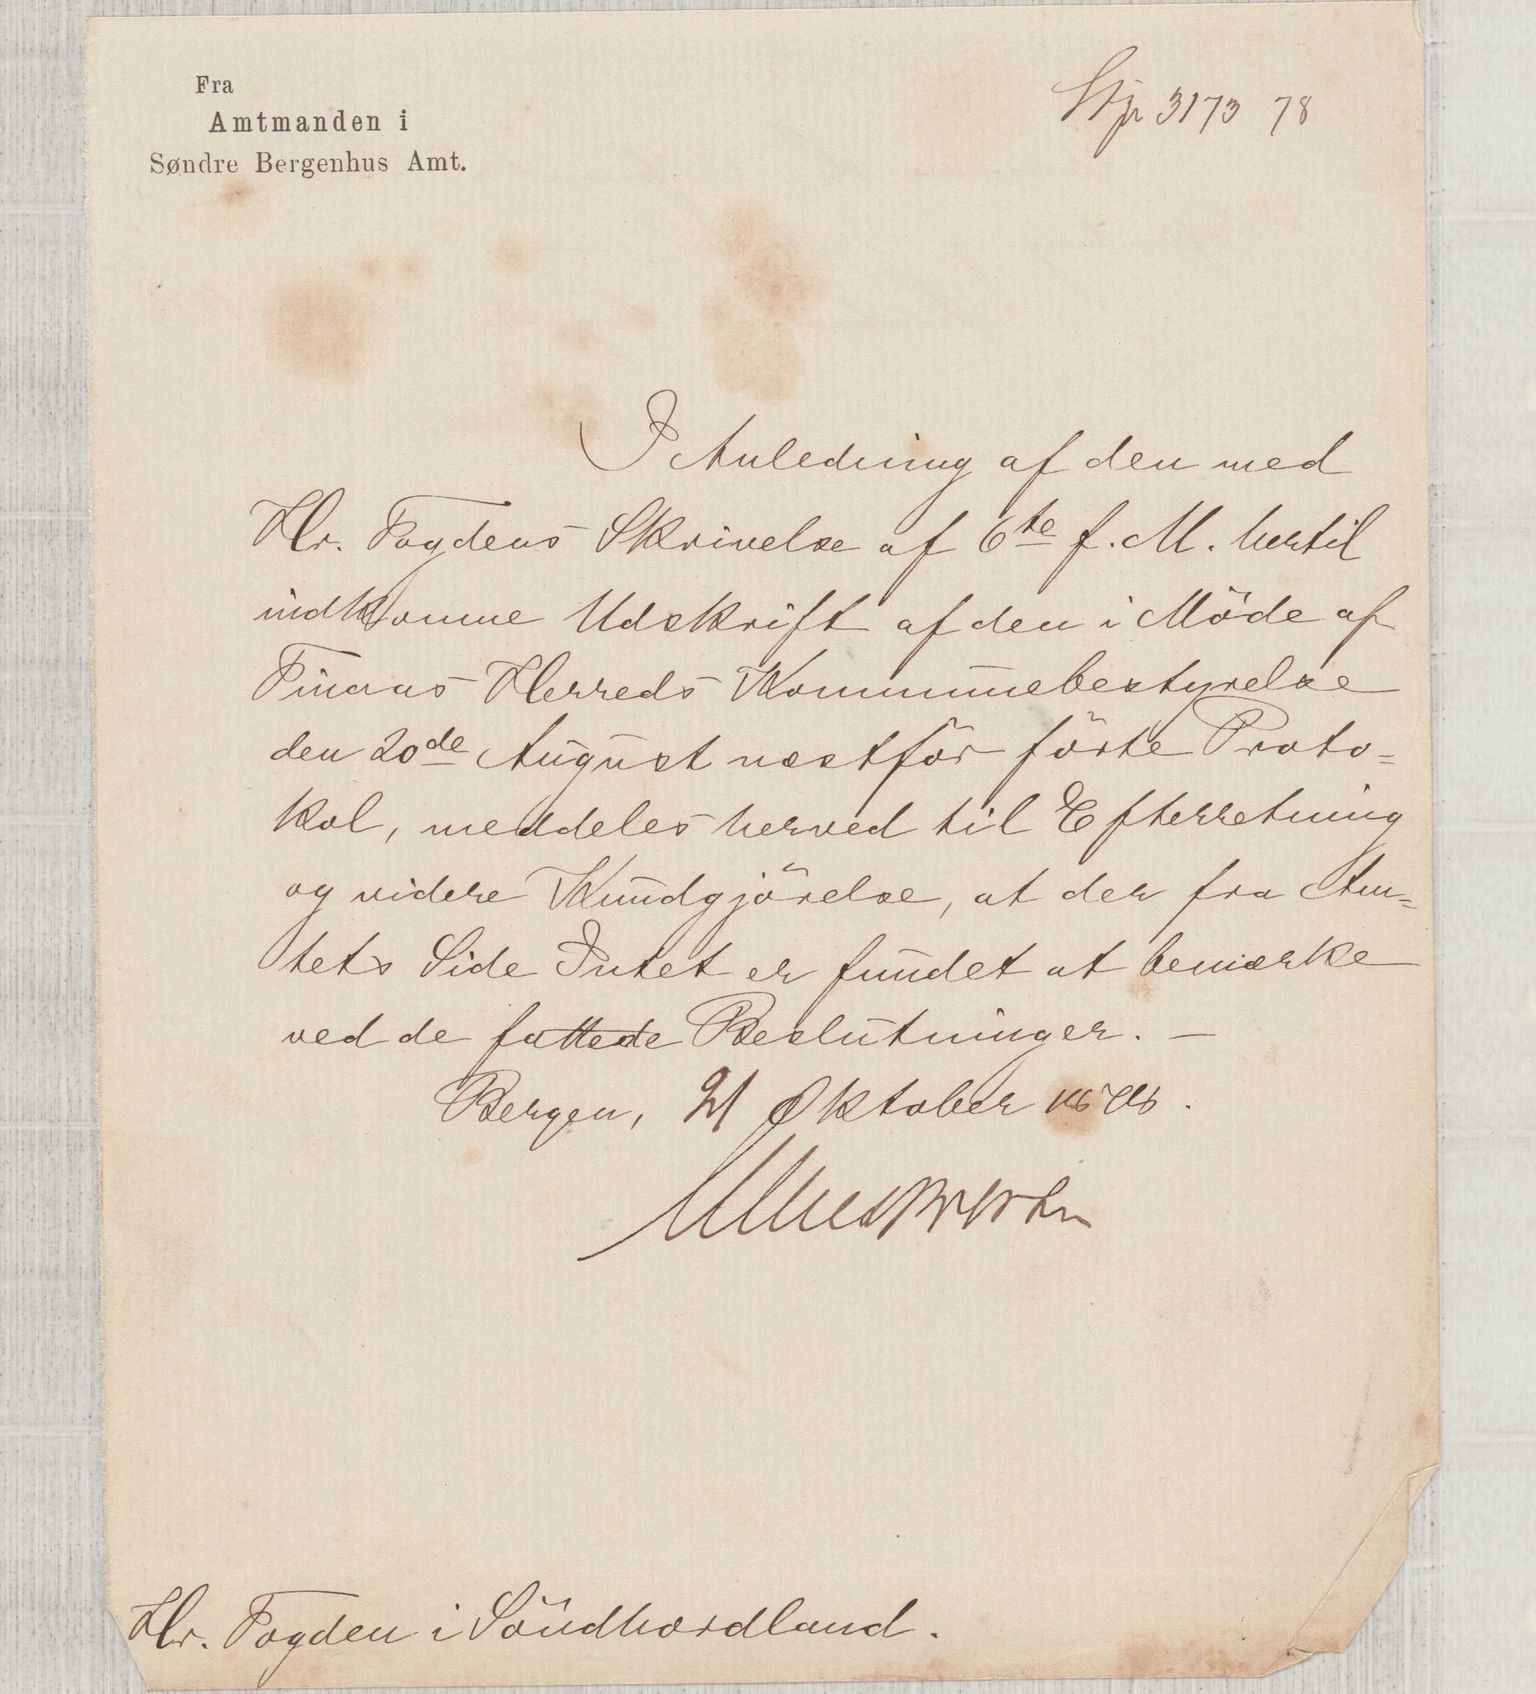 Fra
Amtmanden i
Søndre Bergenhus Amt.
3173 78
I Anledning af den med
Hr. Fogdens Skrivelse af 6te f. M. hertil
indkomne Udskrift af den i Möde af
Finaas Herreds Kommunebestyrelse
den 20de August næstför förte Proto=
kol, meddeles herved til Efterretning
og videre Kundgjörelse, at der fra Am=
tets Side Intet er fundet at bemærke
ved de fattede Beslutninger. —
Bergen, 21 Oktober 1878.
Hr. Fogden i Söndhordland.